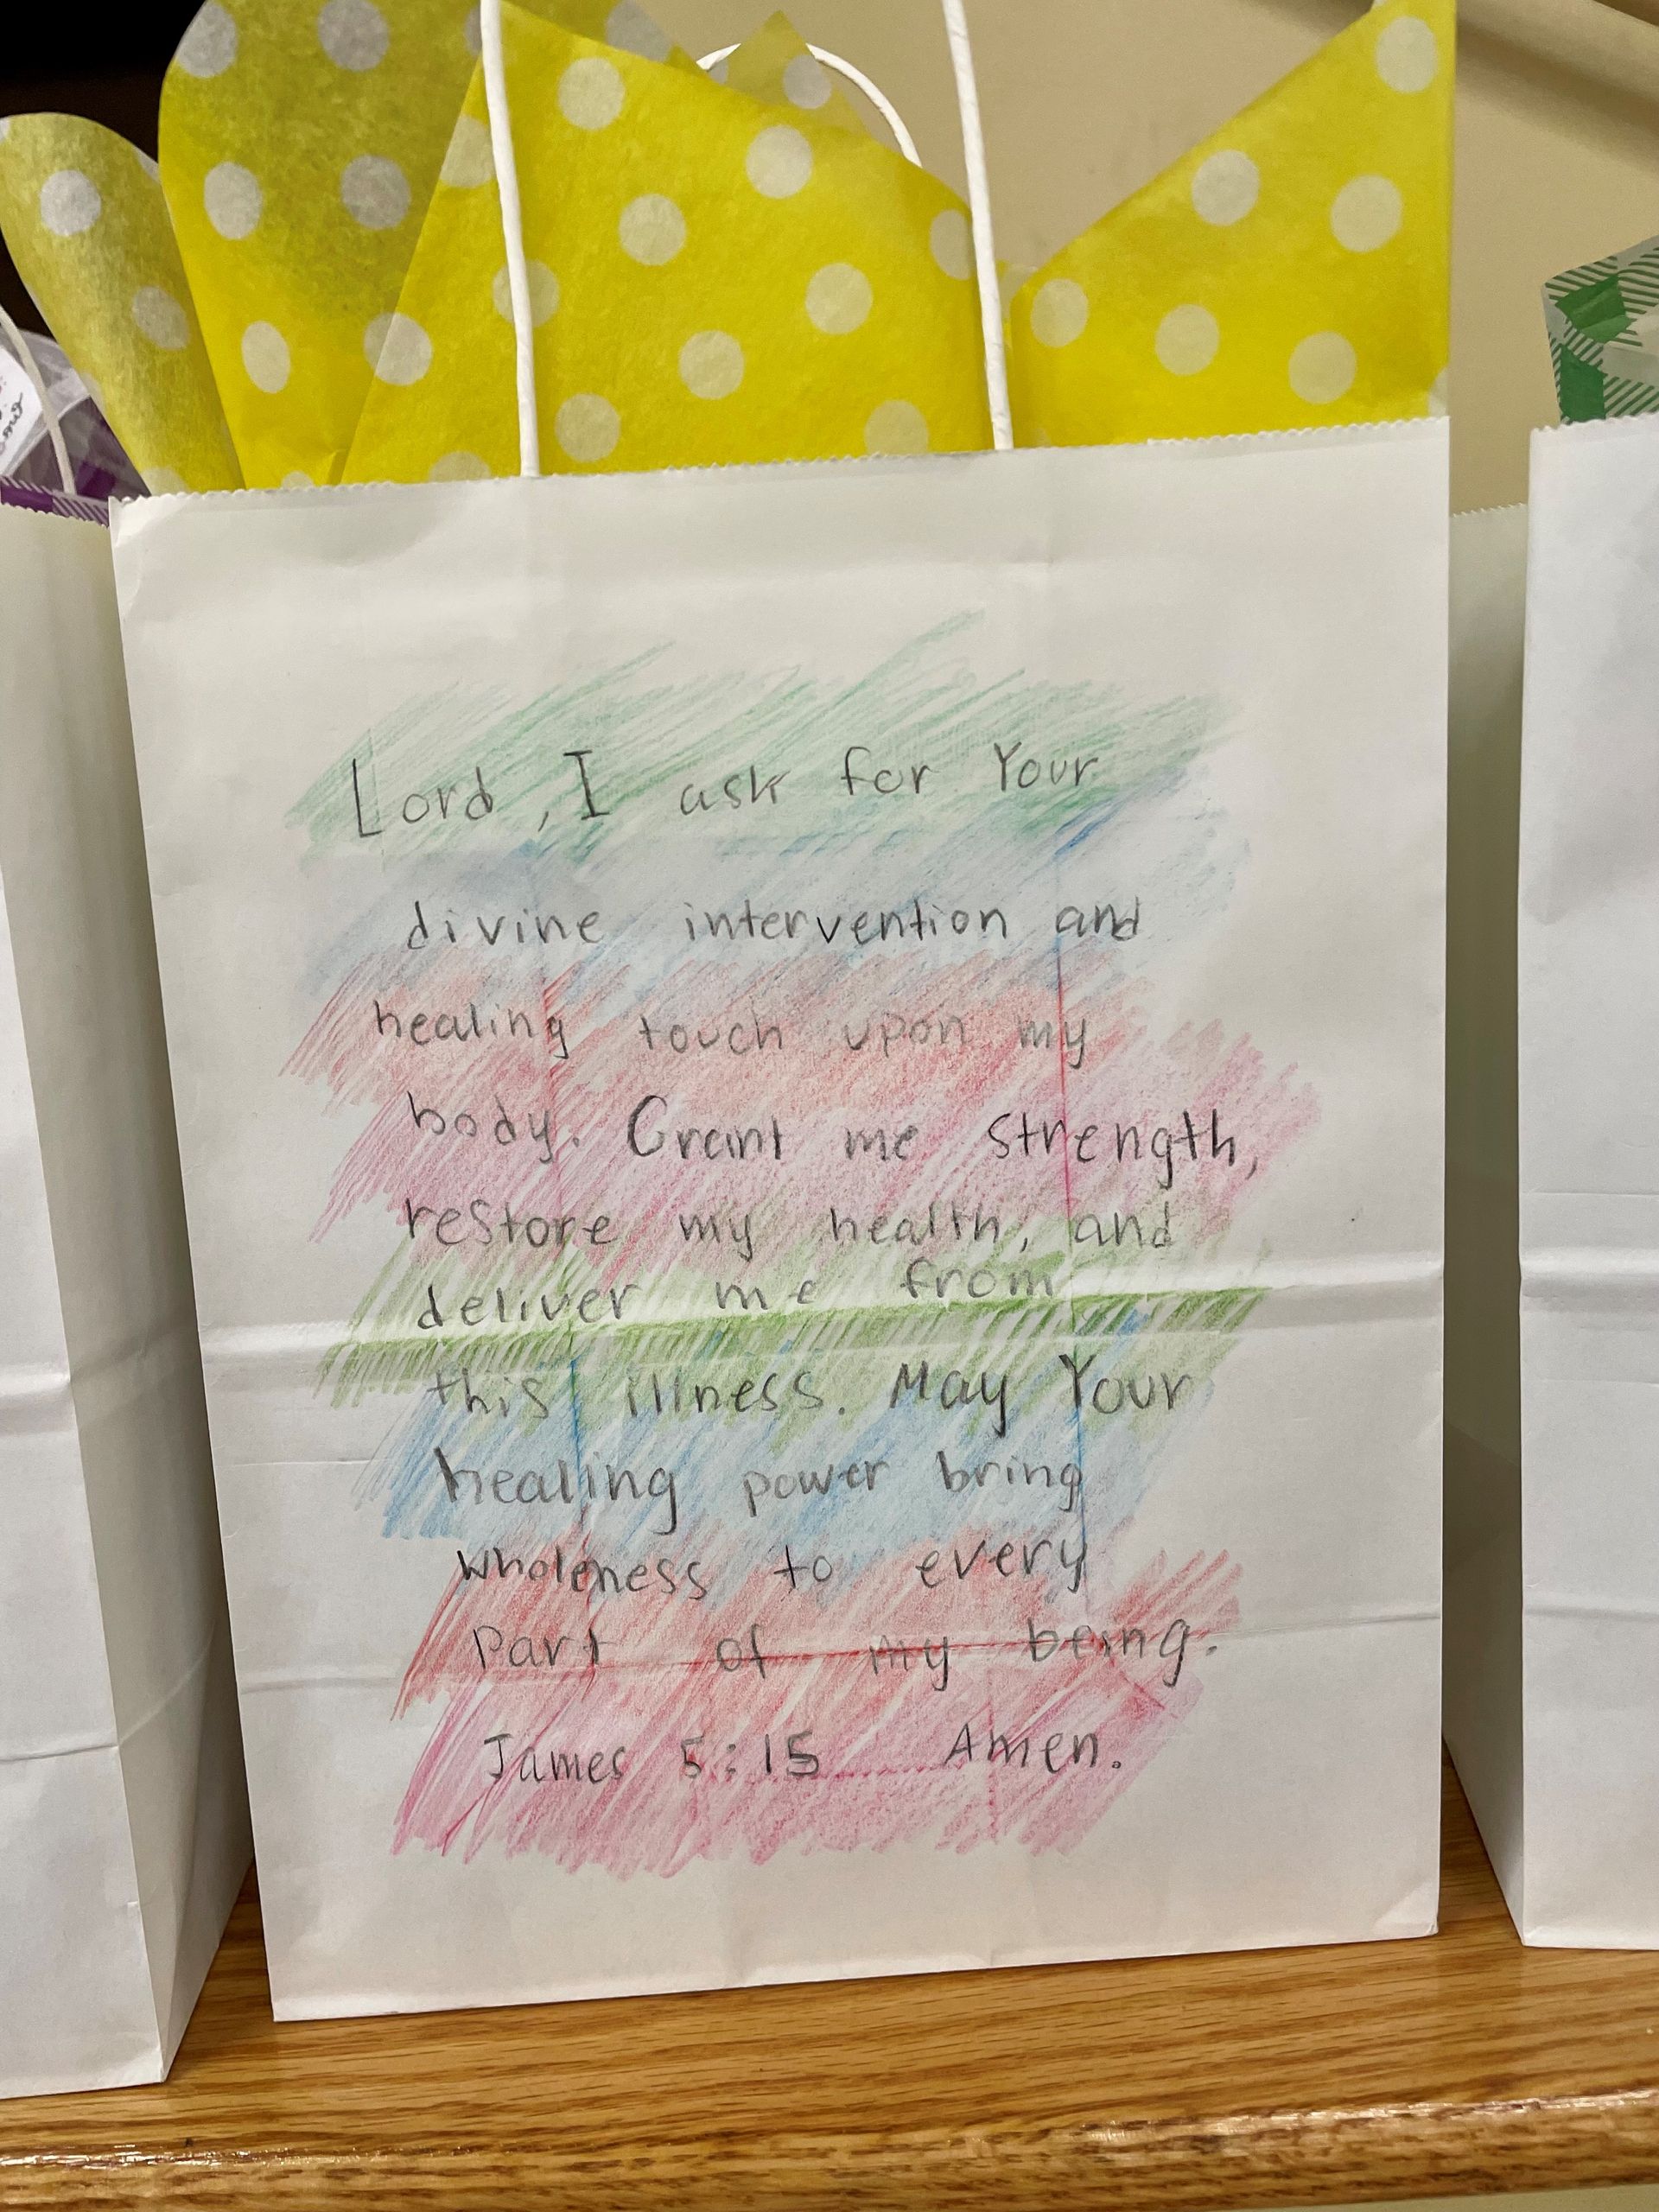 Lord, I ask for Your
divine intervention and
healing touch upon my
body. Grant me strength,
restore my health, and
deliver me from
this illness. May Your
healing power bring
wholeness to every
part of my being.
James 5:15 Amen.